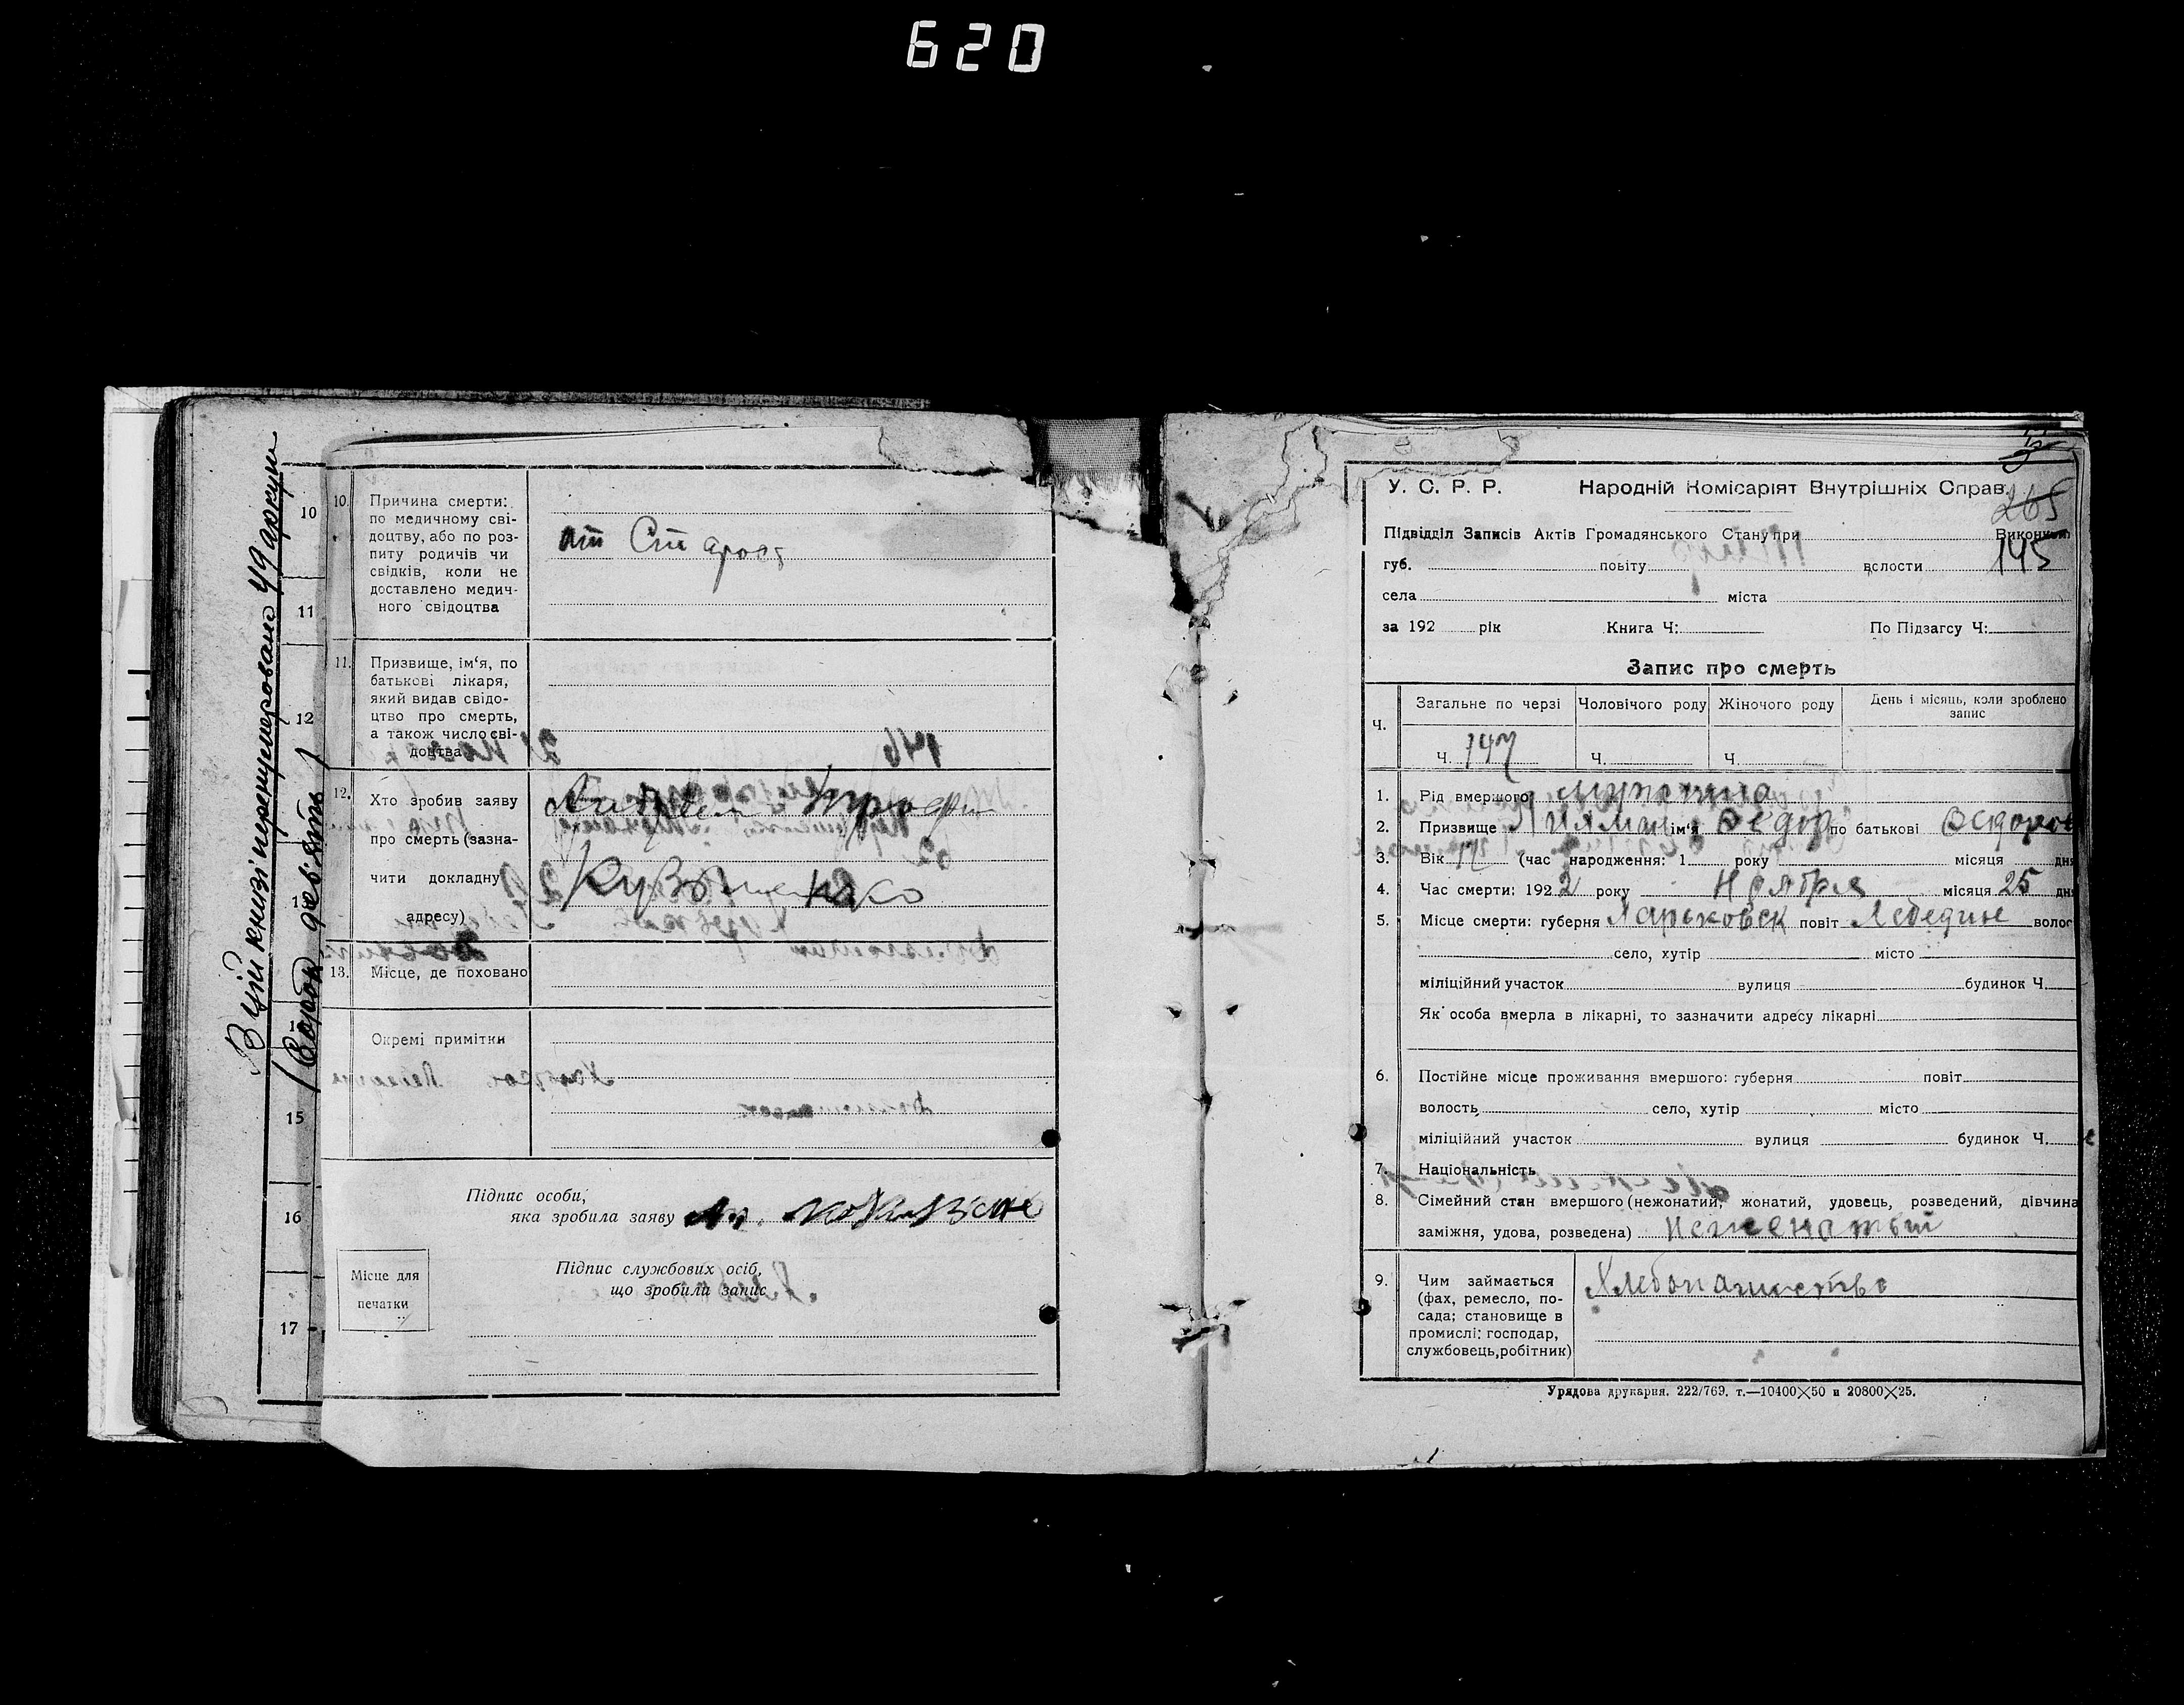 620
В цій книзі перенумеровано 49 аркуш
(Сорок дев'ять)
10
11
12
15
16
17
10. Причина смерти:
по медичному сві-
доцтву, або по роз-
питу родичів чи
свідків, коли не
доставлено медич-
ного свідоцтва
от Старост
11. Призвище, ім'я, по
батькові лікаря,
який видав свідо-
цтво про смерть,
а також число сві-
доцтва
12. Хто зробив заяву
про смерть (зазна-
чити докладну
адресу)
13. Місце, де поховано
Окремі примітки
Підпис особи,
яка зробила заяву
Підпис службових осіб,
що зробили запис
Місце для
печатки
У. С. Р. Р. Народній Комісаріят Внутрішніх Справ.
265
Підвідділ Записів Актів Громадянського Стану при Виконком
145
губ. повіту волости
села міста
за 192 рік Книга Ч: По Підзагсу Ч:
Запис про смерть
Ч. Загальне по черзі Чоловічого роду Жіночого роду День і місяць, коли зроблено
запис
Ч. 147 Ч. Ч.
1. Рід вмершого мужчина
2. Призвище ім'я Федор по батькові Федоров
3. Вік (час народження: 1 року місяця дня
4. Час смерти: 1922 року Ноября місяця 25 дня
5. Місце смерти: губерня Харьковск повіт Лебедине волос
село, хутір місто
міліційний участок вулиця будинок Ч.
Як особа вмерла в лікарні, то зазначити адресу лікарні
6. Постійне місце проживання вмершого: губерня повіт
волость село, хутір місто
міліційний участок вулиця будинок Ч.
7. Національність
8. Сімейний стан вмершого (нежонатий, жонатий, удовець, розведений, дівчина
заміжня, удова, розведена) неженатый
9. Чим займається
(фах, ремесло, по-
сада; становище в
промислі: господар,
службовець, робітник)
Хлебопашество
Урядова друкарня. 222/769. т.—10400×50 и 20800×25.